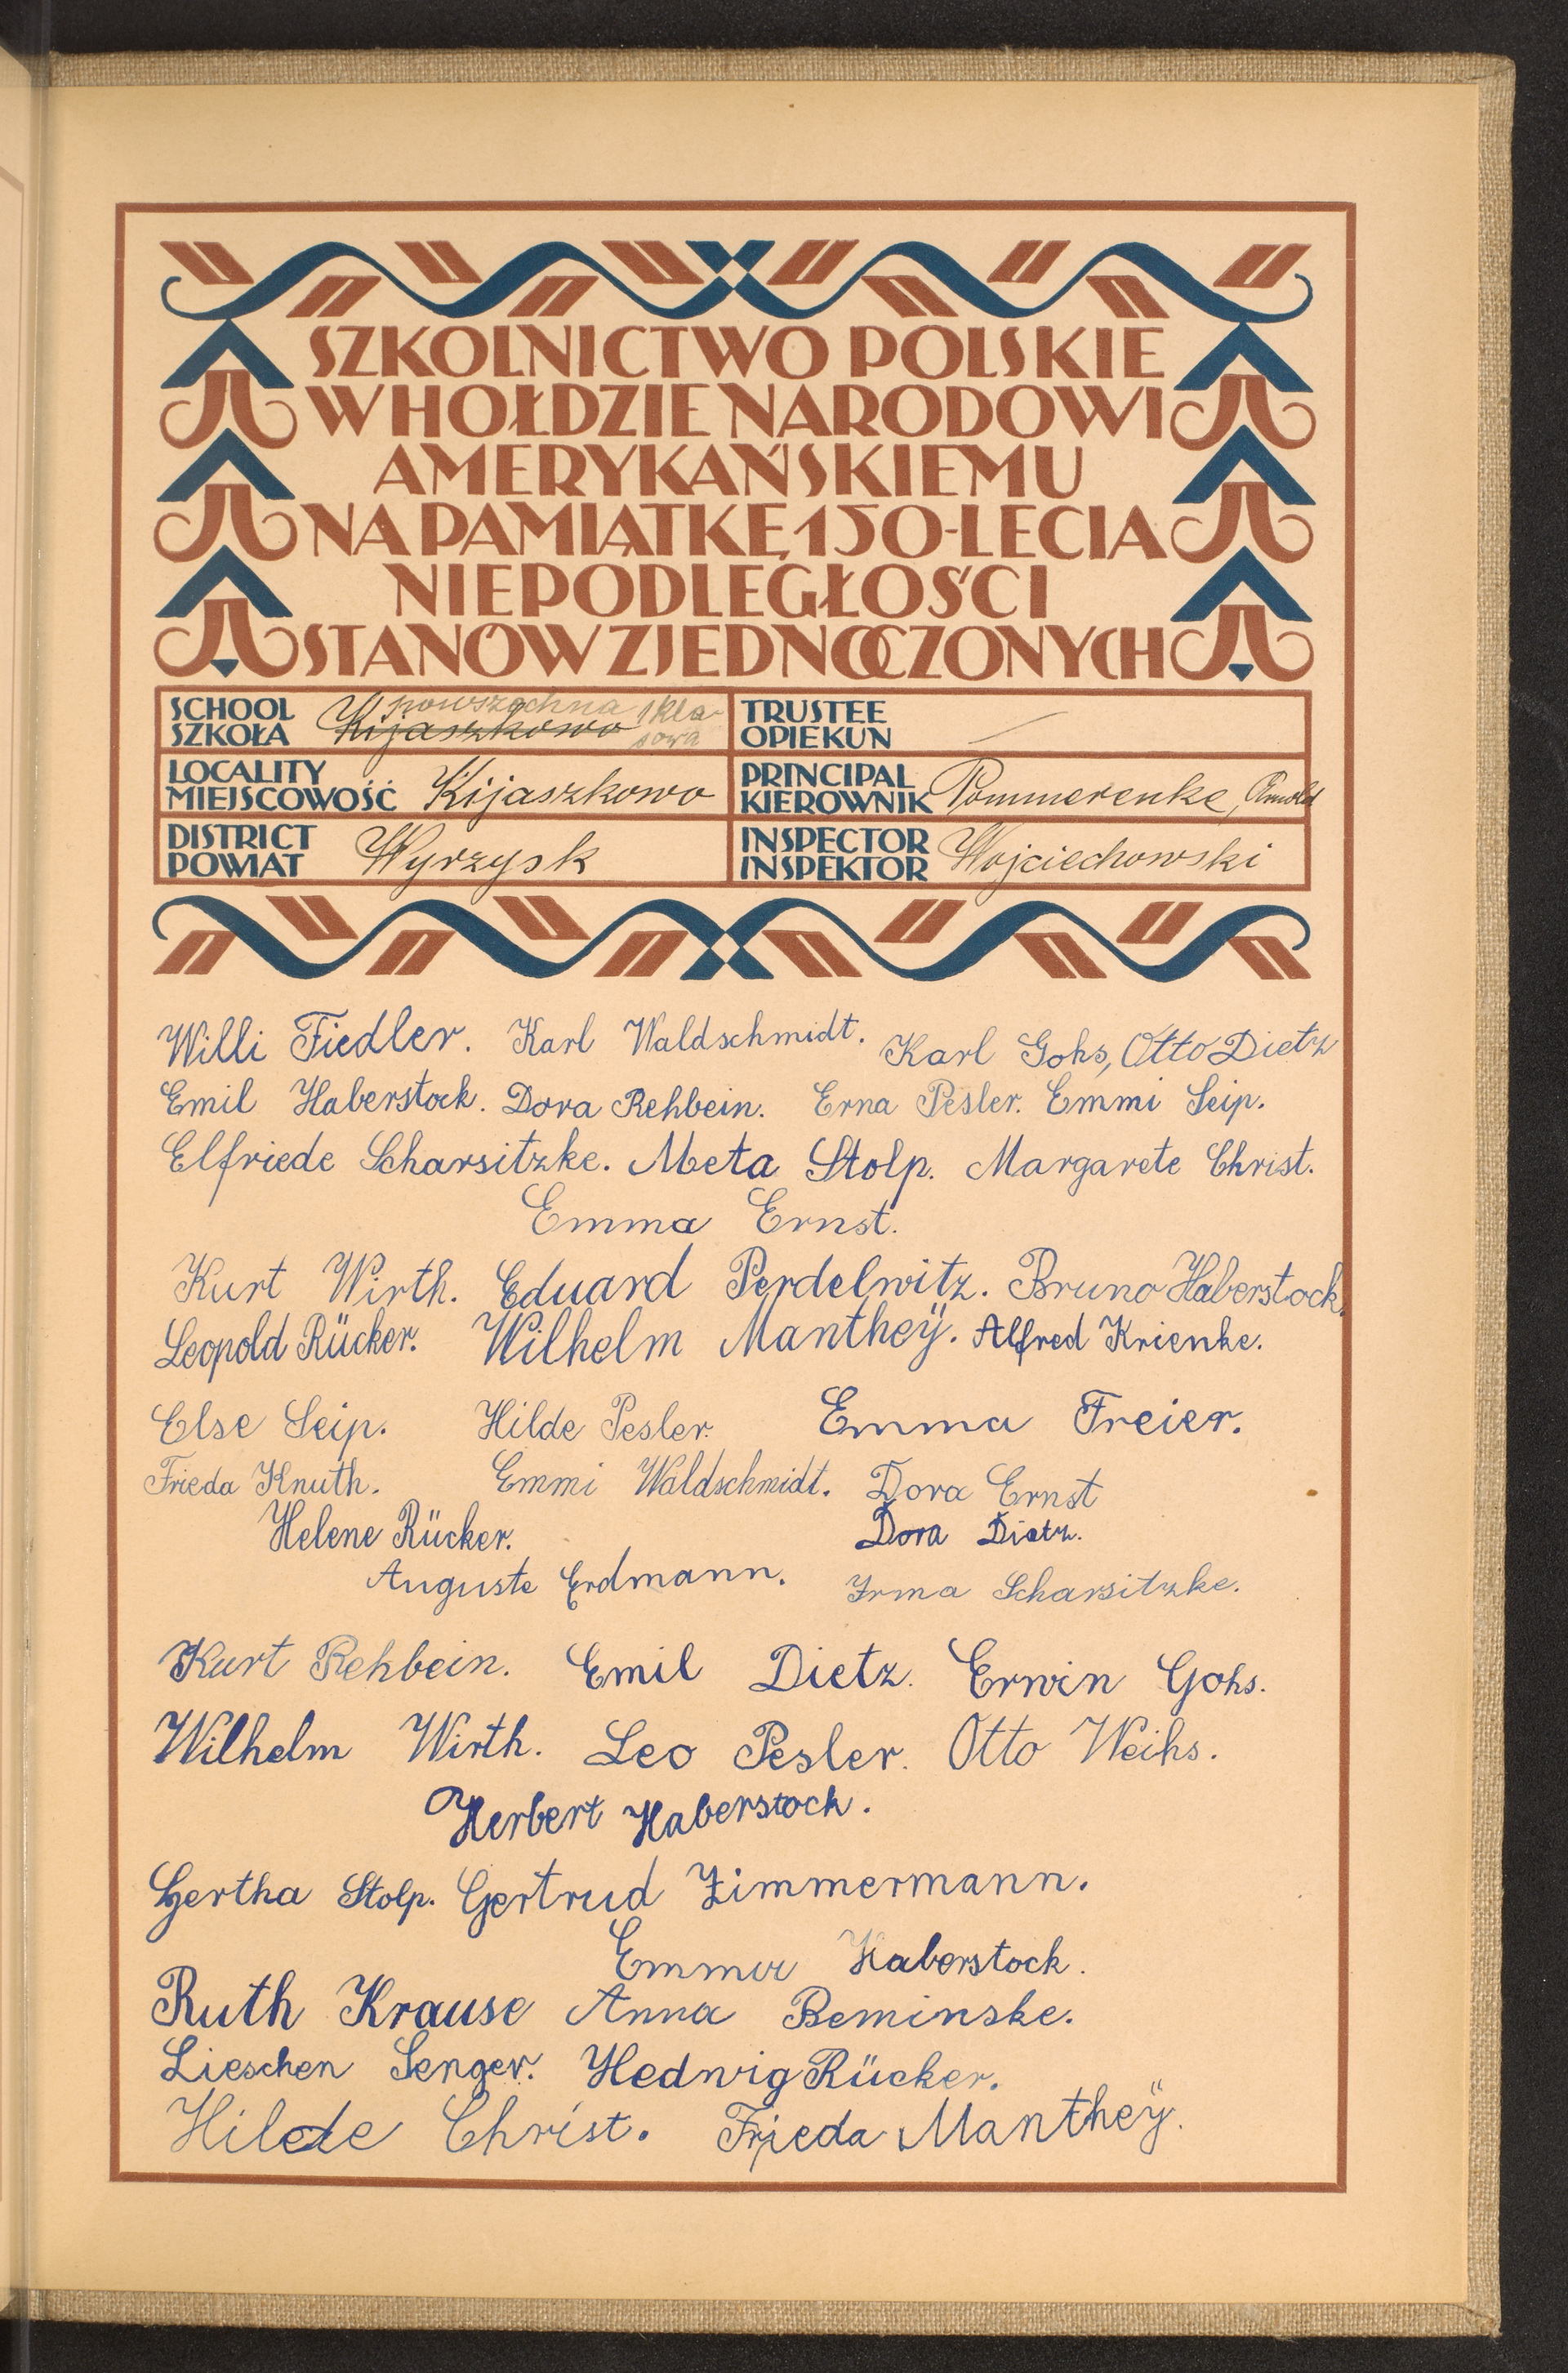 SZKOLNICTWO POLSKIE
W HOŁDZIE NARODOWI
AMERYKAŃSKIEMU
NA PAMIĄTKĘ 150-LECIA
NIEPODLEGŁOŚCI
STANÓW ZJEDNOCZONYCH
SCHOOL SZKOŁA Kijaszkowo powszechna 1 klasowa
TRUSTEE OPIEKUN —
LOCALITY MIEJSCOWOŚĆ Kijaszkowo
PRINCIPAL KIEROWNIK Pommerenke, Arnold
DISTRICT POWIAT Wyrzysk
INSPECTOR INSPEKTOR Wojciechowski
Willi Fiedler. Karl Waldschmidt. Karl Gohs, Otto Dietz
Emil Haberstock. Dora Rehbein. Erna Pesler. Emmi Seip.
Elfriede Scharsitzke. Meta Stolp. Margarete Christ.
Emma Ernst.
Kurt Wirth. Eduard Perdelwitz. Bruno Haberstock.
Leopold Rücker. Wilhelm Mantheÿ. Alfred Krienke.
Else Seip. Hilde Pesler. Emma Freier.
Frieda Knuth. Emmi Waldschmidt. Dora Ernst
Helene Rücker. Dora Dietz.
Auguste Erdmann. Irma Scharsitzke.
Kurt Rehbein. Emil Dietz. Erwin Gohs.
Wilhelm Wirth. Leo Pesler. Otto Weihs.
Herbert Haberstock.
Hertha Stolp. Gertrud Zimmermann.
Emma Haberstock.
Ruth Krause Anna Beminske.
Lieschen Senger. Hedwig Rücker.
Hilde Christ. Frieda Mantheÿ.